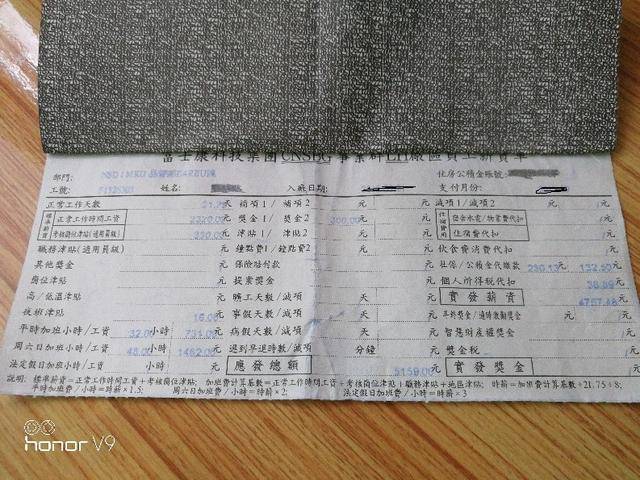 富士康科技集團CNSBG事業群LH廠區員工薪資單
部門: 住房公積金帳號:
工號: 姓名: 入廠日期: 支付月份:
正常工作天數 21.75 天 補項1/ 補項2 元 減項1/ 減項2 元
標準薪資 正常工作時間工資 2320.00 元 獎金1/ 獎金2 300.00 元 住宿費用 宿舍水電/物業費代扣 /元
考核崗位津貼(適用員級) 230.00 元 津貼1/ 津貼2 元 住宿費代扣 /元
職務津貼(適用員級) 元 鐘點費1/鐘點費2 元 伙食費消費代扣 元
其他獎金 元 保險賠付款 元 社保/公積金代繳款 230.13 元 132.50 元
崗位津貼 元 提案獎金 元 個人所得稅代扣 38.89 元
高/低溫津貼 元 曠工天數/減項 天 元 實發薪資 4757.48 元
夜班津貼 16.00 元 事假天數/減項 天 元 年終獎金/ 元
平時加班小時/工資 32.00 小時 731.00 元 病假天數/減項 天 元 智慧財產權獎金 元
周六日加班小時/工資 48.00 小時 1462.00 元 遲到早退時數/減項 分鐘 元 獎金稅 元
法定假日加班小時/工資 小時 元 應發總額 5159.00 元 實發獎金 元
說明: 標準薪資=正常工作時間工資+考核崗位津貼; 加班費計算基數=正常工作時間工資+考核崗位津貼+職務津貼+地區津貼; 時薪=加班費計算基數÷21.75÷8;
平時加班費/小時=時薪×1.5; 周六日加班費/小時=時薪×2; 法定假日加班費/小時=時薪×3
honor V9